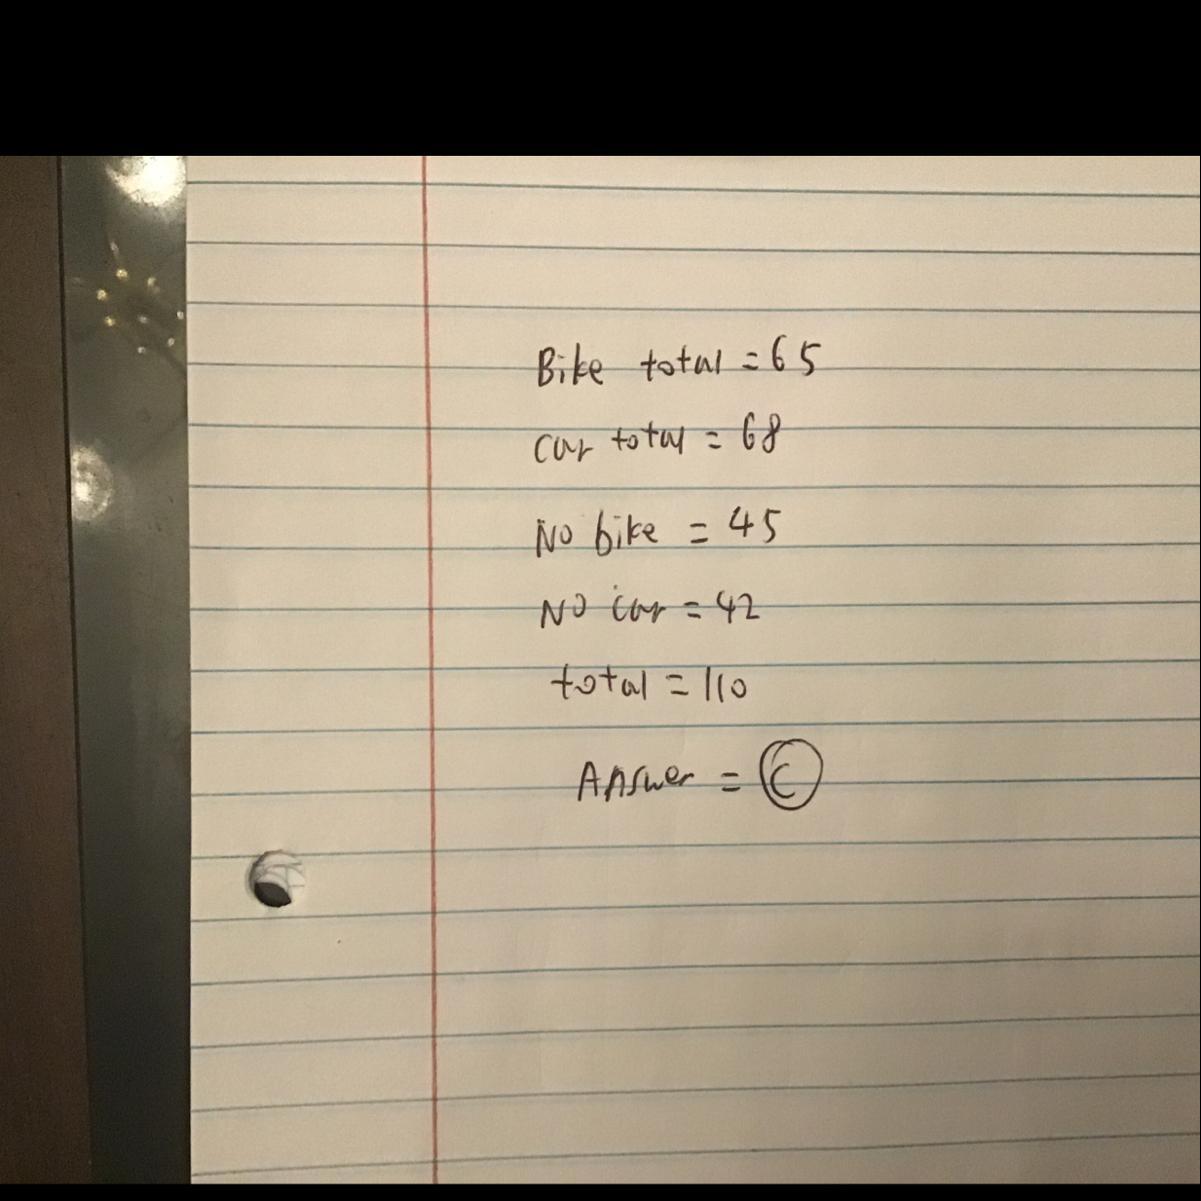 Bike total = 65
car total = 68
No bike = 45
No car = 42
total = 110
Answer = C